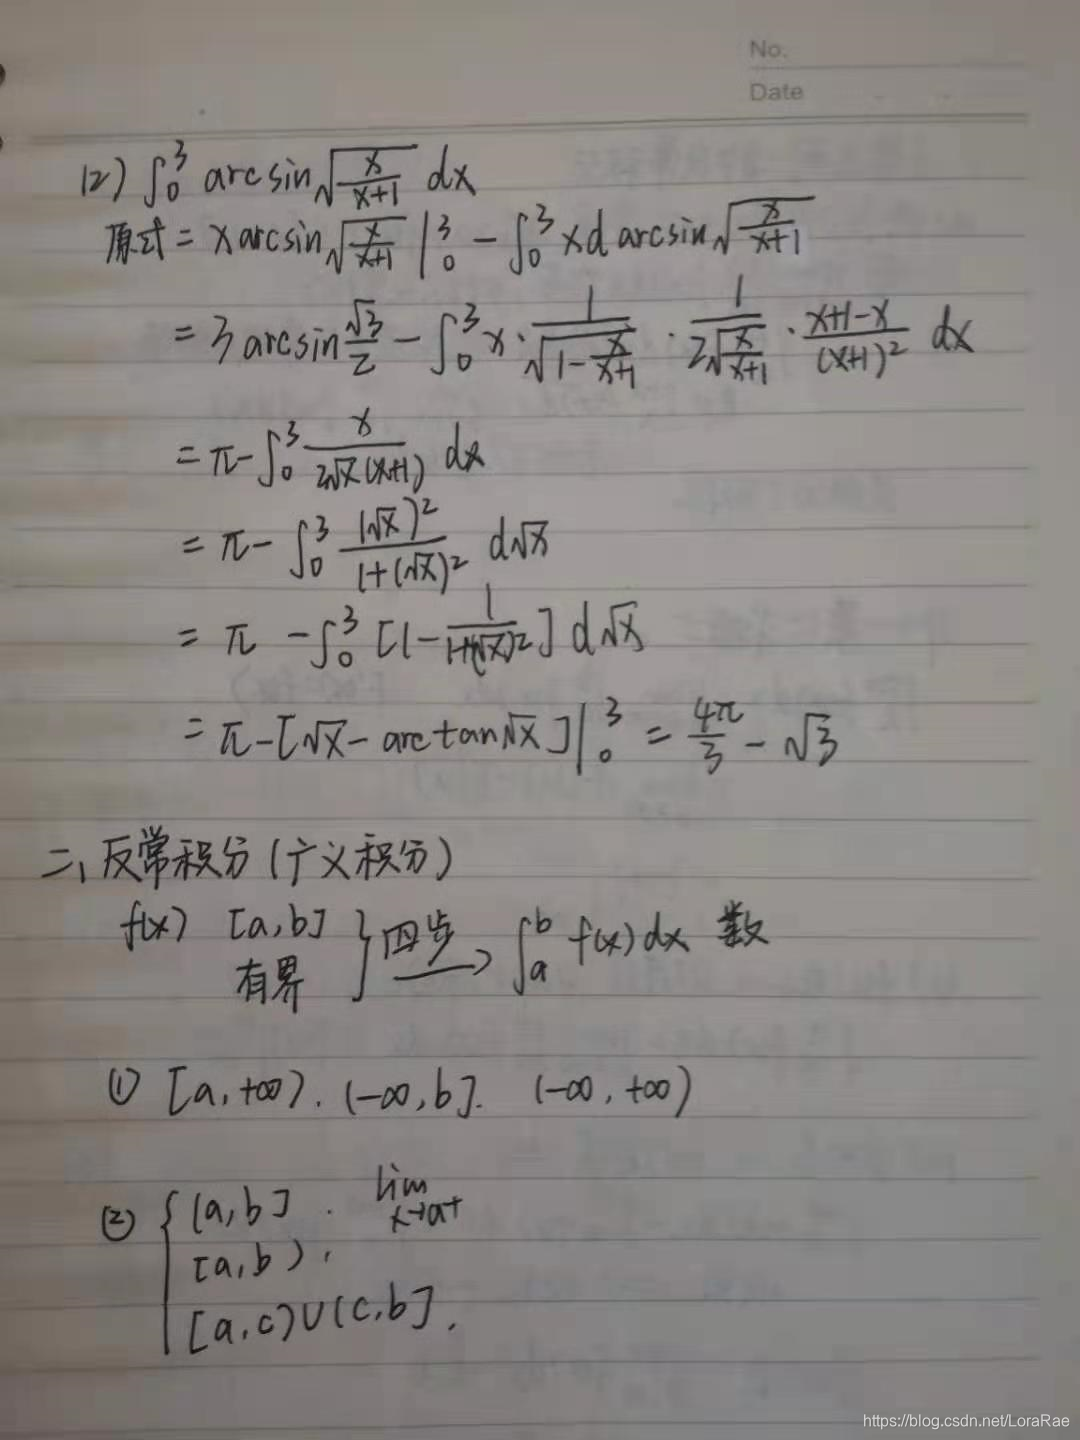 No.
Date
12) ∫₀³ arcsin√(x/(x+1)) dx
原式 = x arcsin√(x/(x+1)) |₀³ - ∫₀³ x d arcsin√(x/(x+1))
= 3 arcsin √3/2 - ∫₀³ x · 1/√(1 - x/(x+1)) · 1/(2√(x/(x+1))) · (x+1-x)/(x+1)² dx
= π - ∫₀³ x/(2√x(x+1)) dx
= π - ∫₀³ (√x)²/(1+(√x)²) d√x
= π - ∫₀³ [1 - 1/(1+(√x)²)] d√x
= π - [√x - arctan√x] |₀³ = 4π/3 - √3
二、反常积分(广义积分)
f(x) [a,b] 有界 } 四步→ ∫ₐᵇ f(x)dx 数
① [a,+∞). (-∞,b]. (-∞,+∞)
② { (a,b] . lim x→a+
[a,b) .
[a,c)∪(c,b] .
https://blog.csdn.net/LoraRae